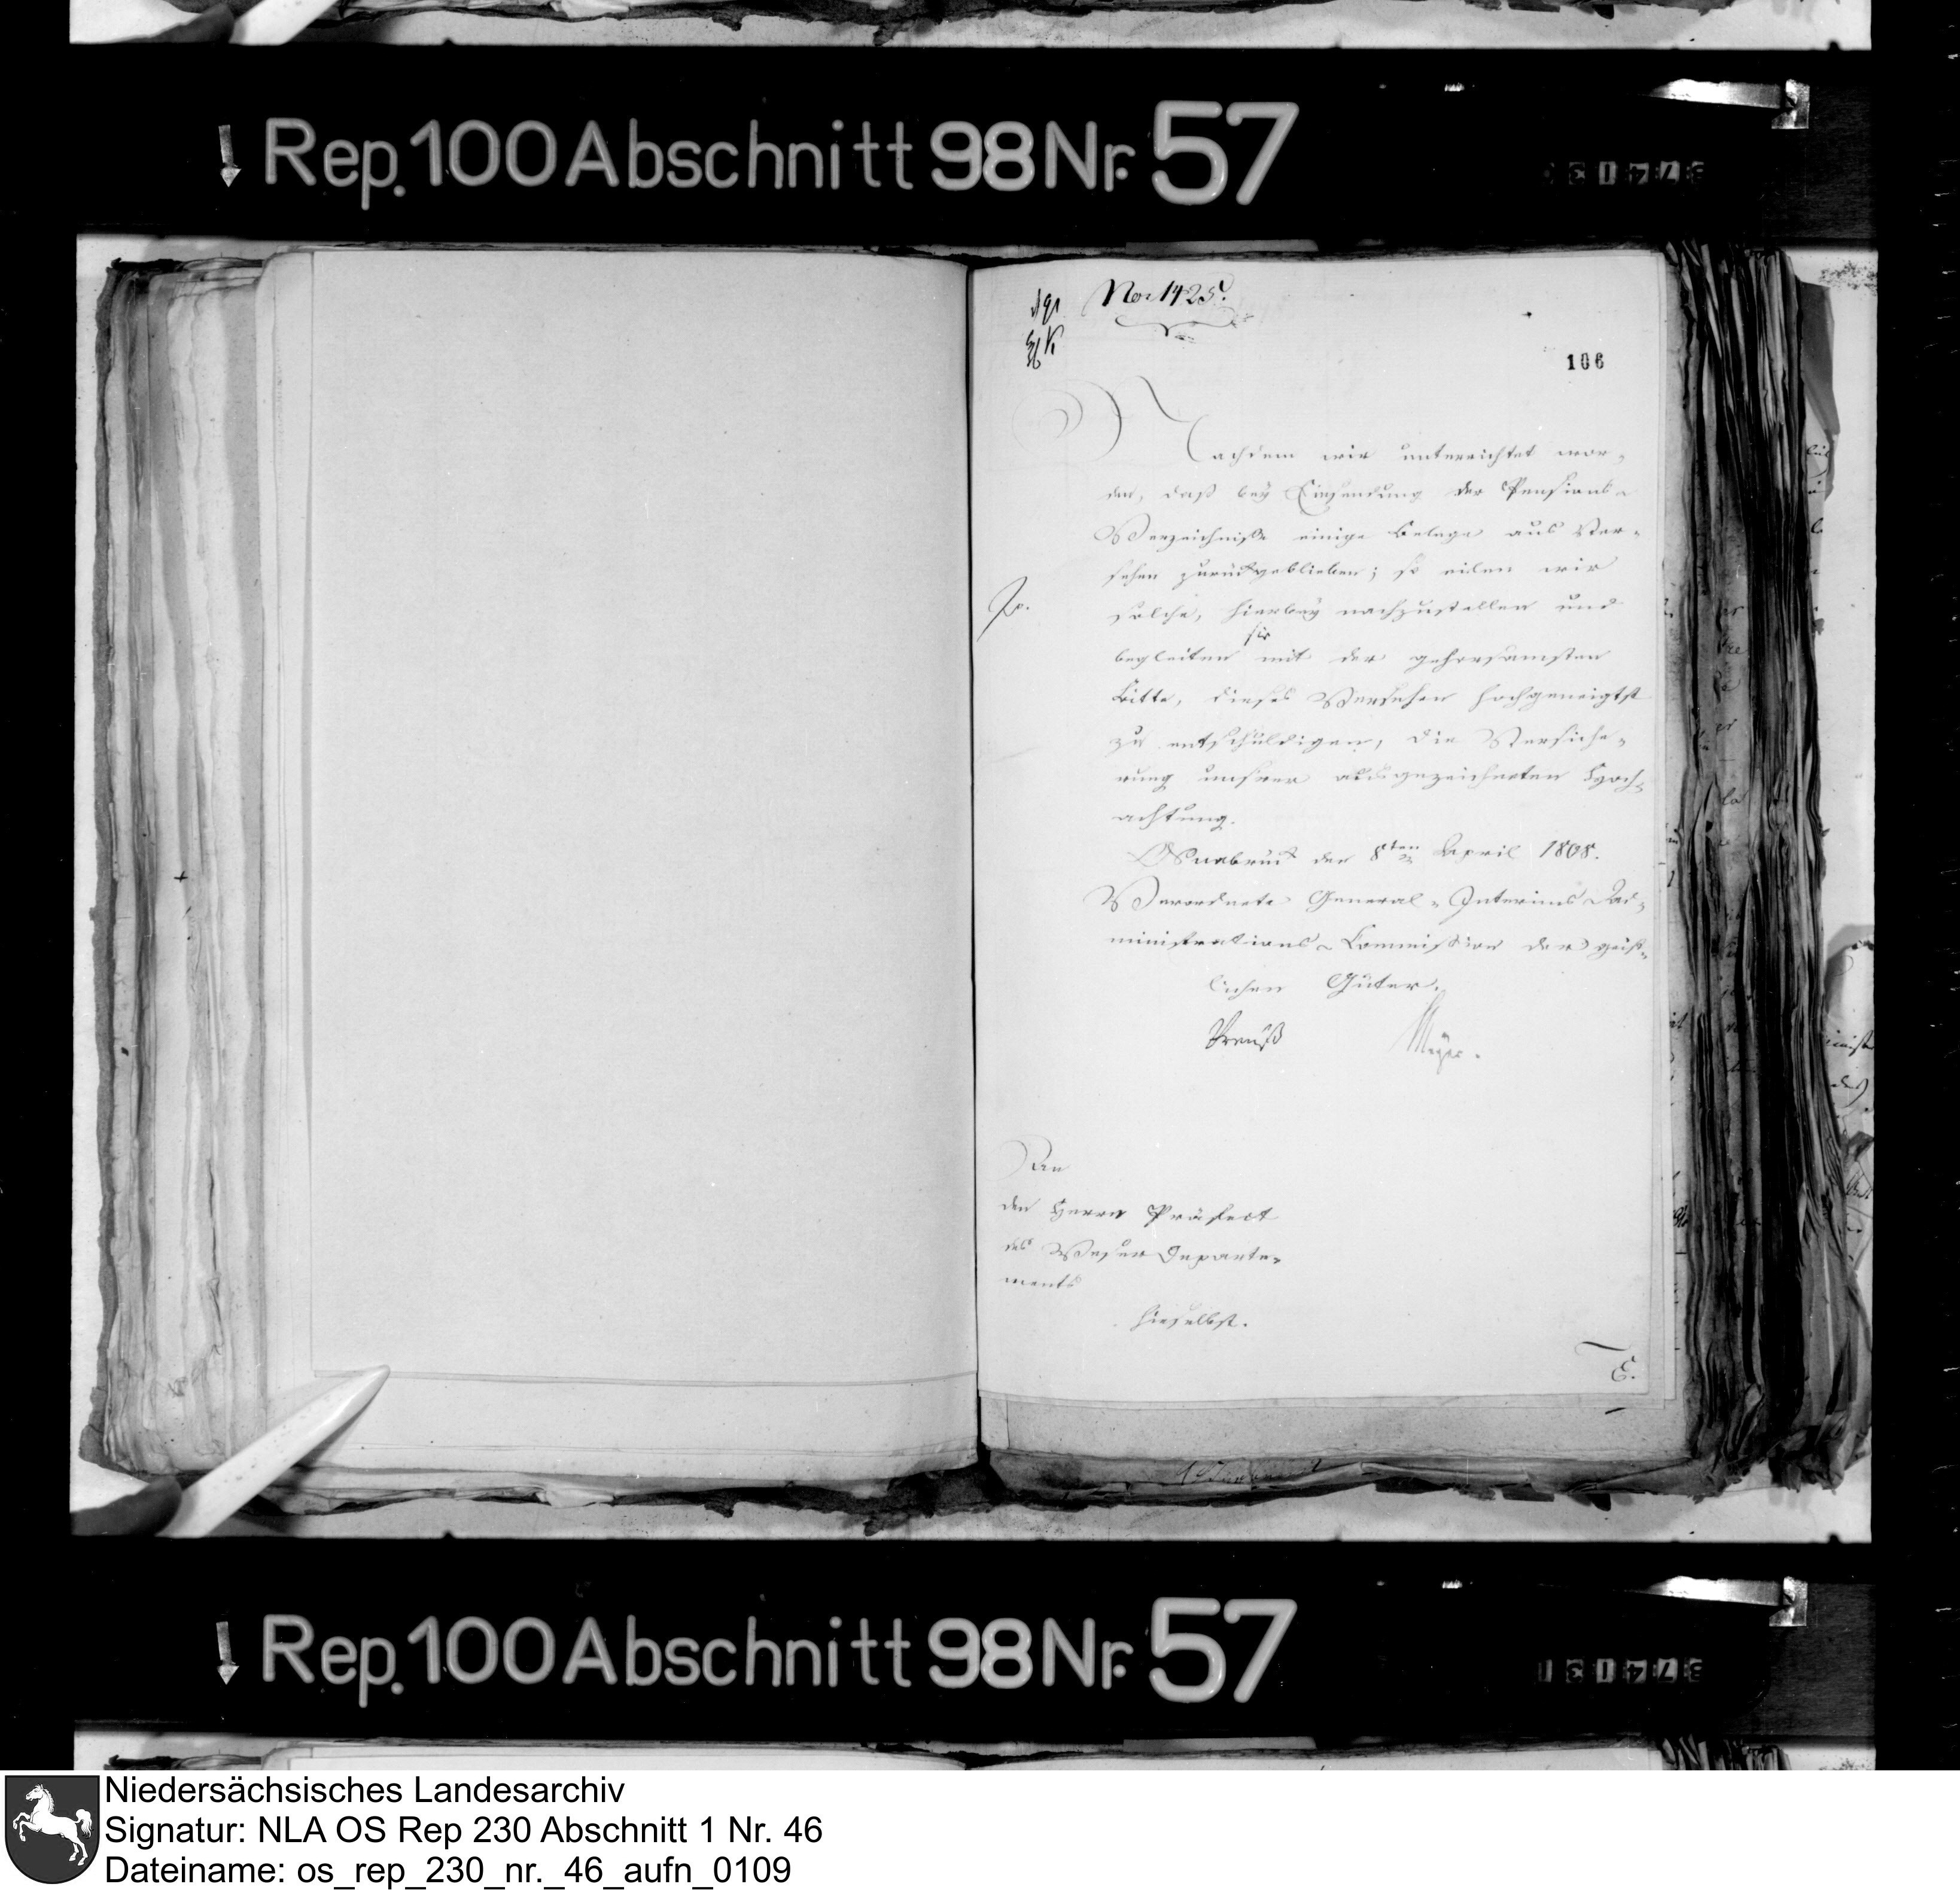 Rep. 100 Abschnitt 98 Nr. 57
No: 1425.
106
Nachdem wir unterrichtet wor-
den, daß bey Einsendung der Pensions-
Verzeichniße einige Belege aus Ver-
sehen zurückgeblieben; so eilen wir
solche, hierbey nachzustellen und
begleiten sie mit der gehorsamsten
Bitte, dieses Versehen hochgeneigtst
zu entschuldigen, die Versiche-
rung unsrer ausgezeichneten Hoch-
achtung.
Osnabrück den 8ten April 1808.
Verordnete General-Interims-Ad-
ministrations-Commission der geist-
lichen Güter.
Preuß Meyer.
An
den Herrn Präfect
des Weser Departe-
ments
hieselbst.
E.
Rep. 100 Abschnitt 98 Nr. 57
Niedersächsisches Landesarchiv
Signatur: NLA OS Rep 230 Abschnitt 1 Nr. 46
Dateiname: os_rep_230_nr._46_aufn_0109